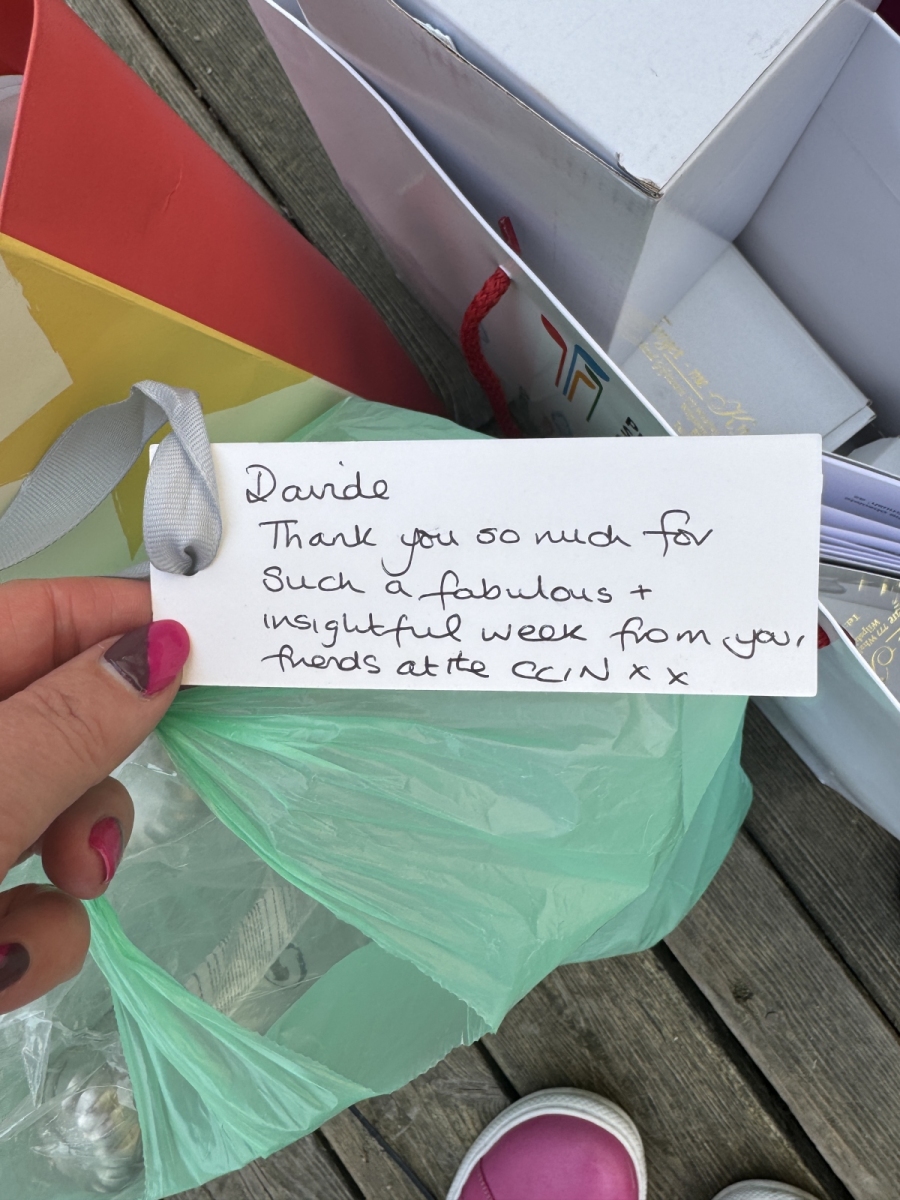 Davide
Thank you so much for
Such a fabulous +
insightful week from your
friends at the CCIN x x